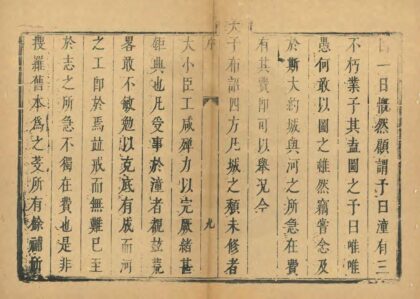 一日慨然顧謂予曰潼有三
不朽業子其盍圖之予曰唯唯
愚何敢以圖之雖然竊嘗念及
於斯大約城與河之所急在費
有其費即可以舉況今
天子布詔四方凡城之頹未修者
序
九
大小臣工咸殫力以完厥緒甚
鉅典也凡受事於潼者觀茲荒
畧敢不敏勉以克底有成而河
之工即於焉並戒而無難已至
於志之所急不獨在費也是非
搜羅舊本爲之芟所有餘補所